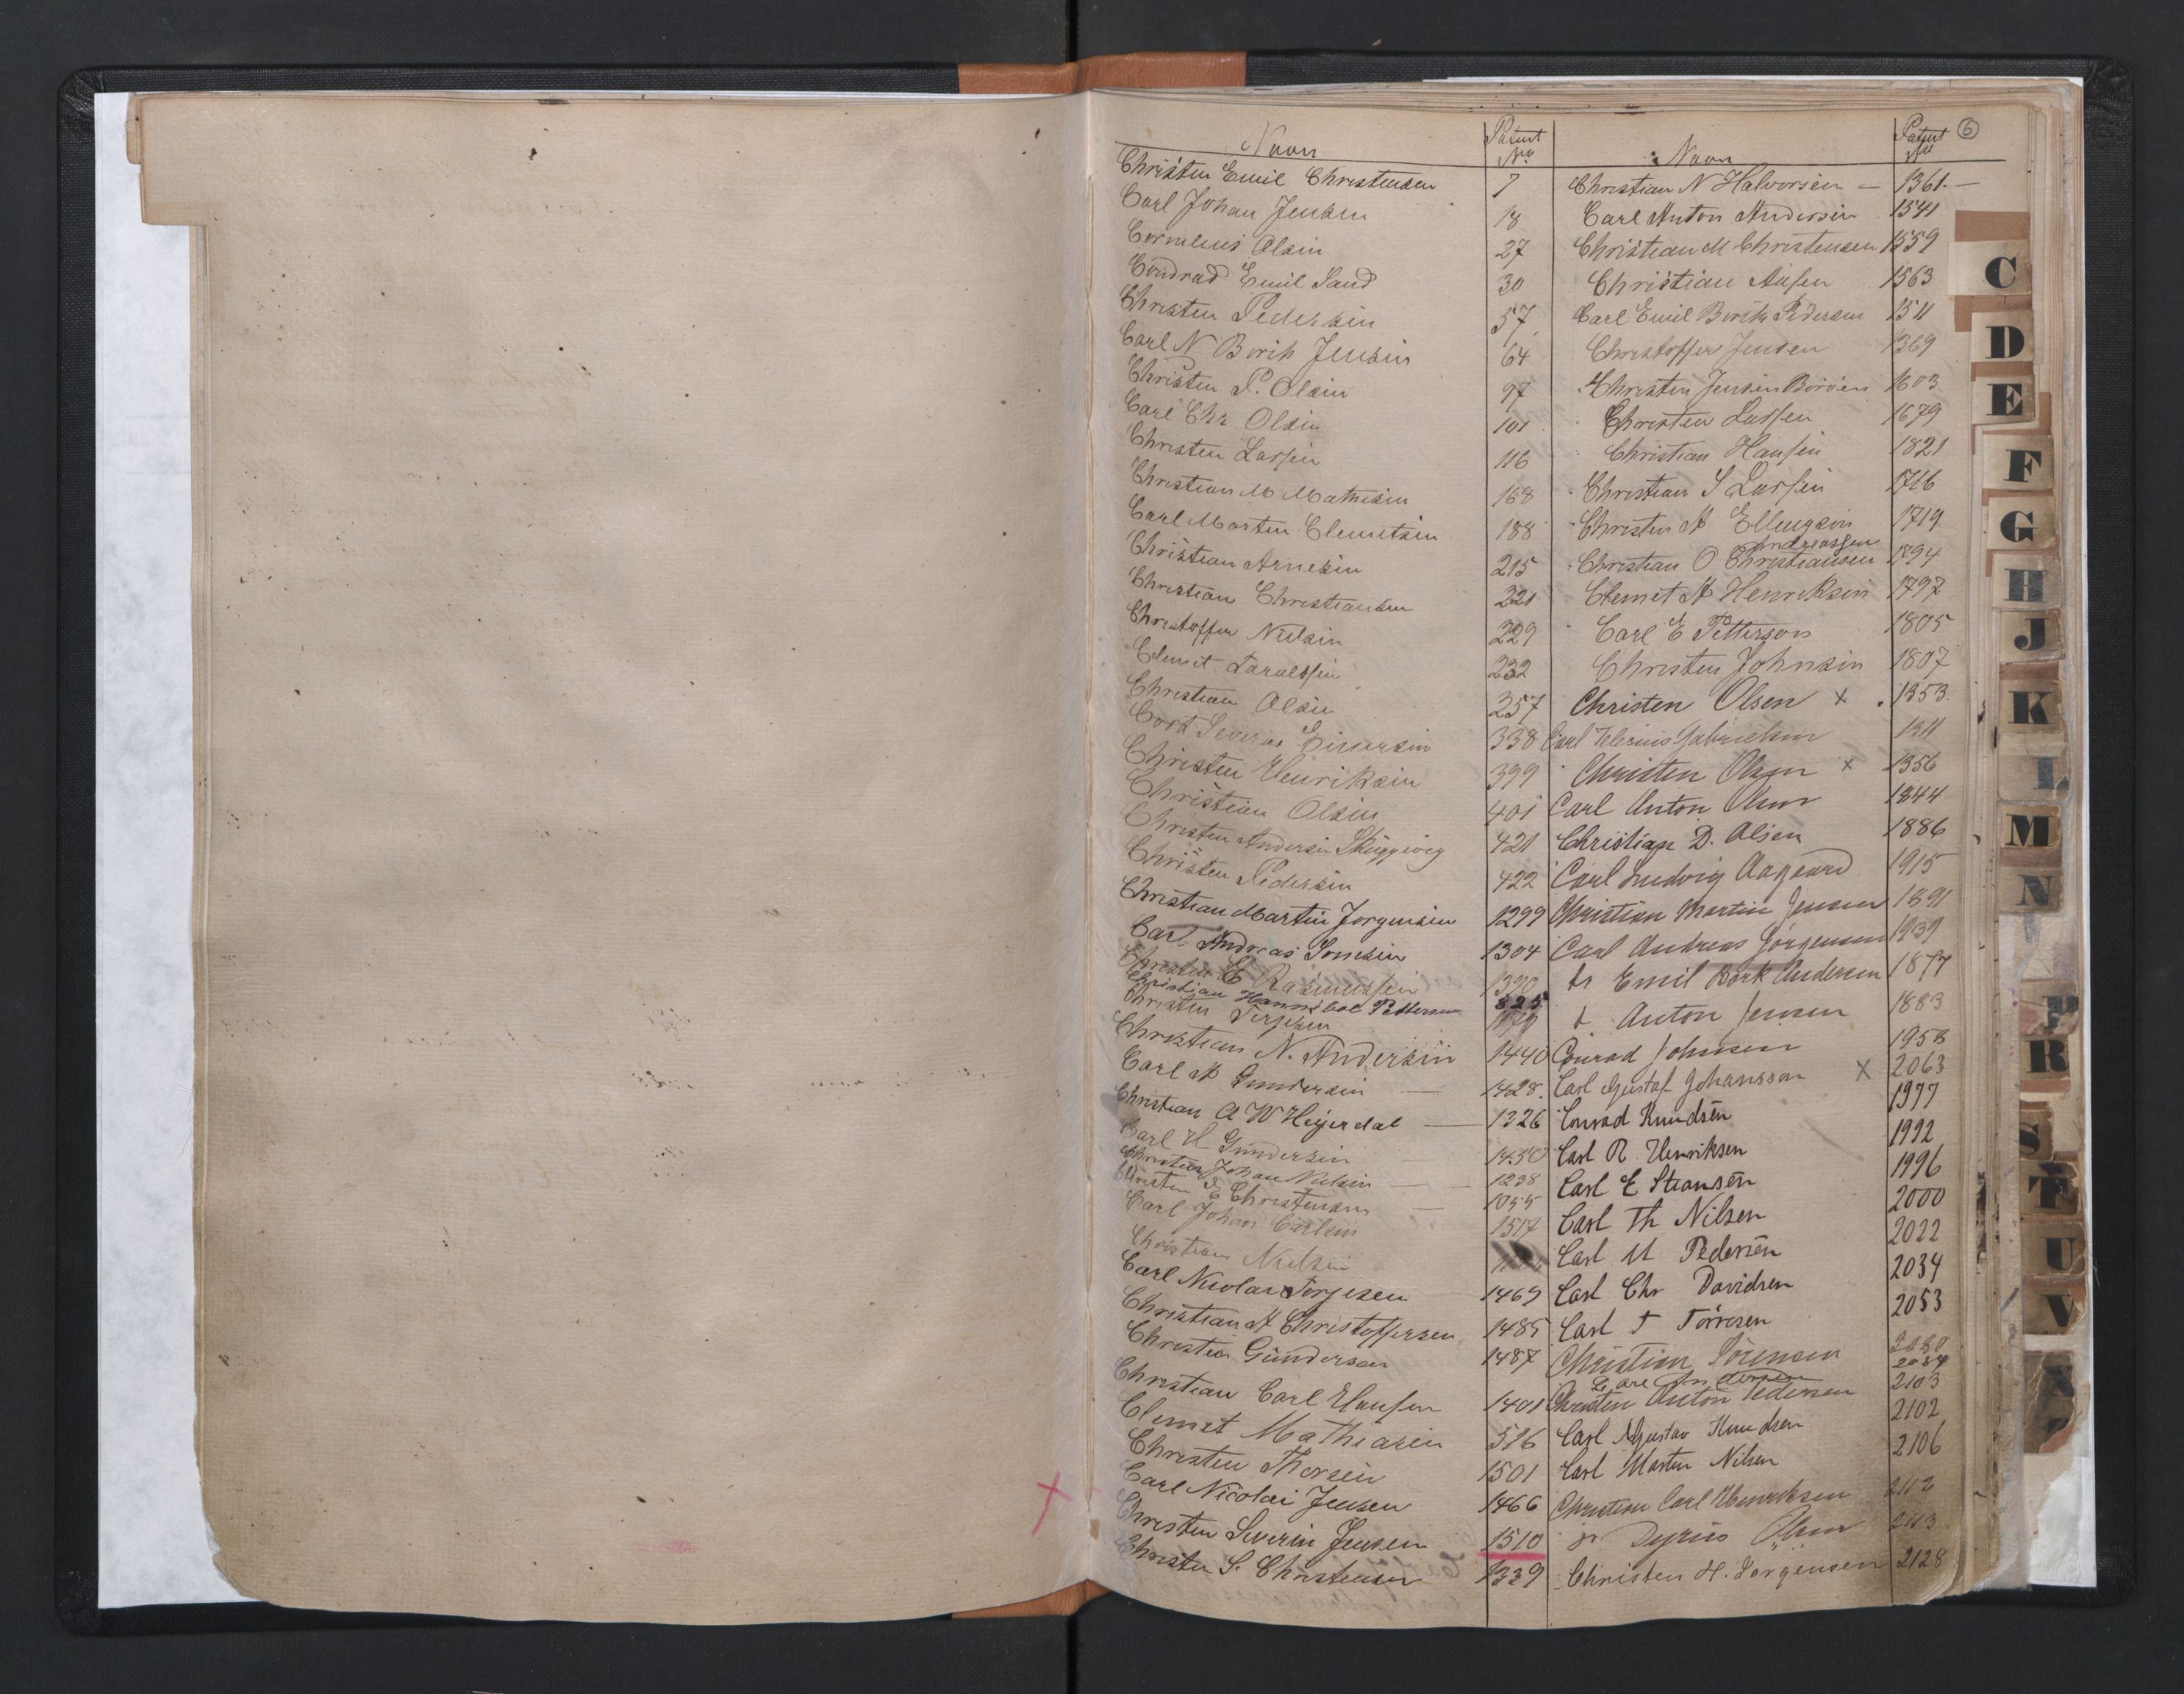 6
Navn Patent No
Christen Emil Christensen 7
Carl Johan Jensen 18
Cornelius Olsen 27
Condrad Emil Sand 30
Christen Pedersen 57
Carl N Borik Jensen 64
Christen P. Olsen 97
Carl Chr Olsen 101
Christen Larsen 116
Christian M Mathisen 168
Carl Morten Clemetsen 188
Christian Arnesen 215
Christian Christiansen 221
Christoffer Nielsen 229
Clemet Taraldsen 232
Christian Olsen 257
Severin Einersen 338
Christen Henriksen 399
Christian Olsen 401
Christen Andersen 421
Christen Pedersen 422
Christian Martin Jorgensen 1299
Carl Andreas 1304
Christen E Rasmussen 1390
Christian Hannibal Pettersen 825
Christen Terjesen
Christian N. Andersen 1440
Carl A Gundersen — 1428.
Christian A W Heyerdal — 1326
Carl H Gundersen 1450
Christian Johan Nielsen — 1238
Christen E Christensen — 1055
Carl Johan Carlsen 1517
Christian Nielsen
Carl Nicolai Torjesen 1469
Christian A Christoffersen 1485
Christen Gundersen 1487
Christian Carl Hansen 1401
Clemet Mathiasen 516
Christen Thorsen 1501
Carl Nicolai Jensen 1466
Christen Severin Jensen 1510
Christen S. Christensen 1339
Navn Patent No
Christian N Halvorsen — 1361 —
Carl Anton Andersen 1541
Christian M Christensen 1559
Christian Aasen 1563
Carl Emil Borik Pedersen 1511
Christoffer Jensen 1369
Christen Jensen Boröen 1603
Christen Larsen 1679
Christian Hansen 1821
Christian S Larsen 1716
Christen A Ellingsen 1719
Andreassen
Christian O Christiansen 1794
Clemet A Henriksen 1797
Carl E Petterson 1805
Christen Johnsen 1807
Christen Olsen x 1353
Carl Gabrielsen 1311
Christen Olsen x 1356
Carl Anton Olsen 1844
Christian D. Olsen 1886
Carl Ludvig Aagaard 1915
Christian Martin Jensen 1891
Carl Andreas Jörgensen 1939
Emil Bork Andersen 1877
Anton Jensen 1883
Conrad Johnsen 1958
Carl Gustaf Johansson x 2063
Conrad Knudsen 1977
Carl R Henriksen 1992
Carl E Stiansen 1996
Carl Th Nilsen 2000
Carl M Pedersen 2022
Carl Chr Davidsen 2034
Carl T Törresen 2053
Christian Sörensen 2080
Carl Andersen 2084
Christen Anton Pedersen 2103
Carl Gustav Knudsen 2102
Carl Martin Nilsen 2106
Christian Carl Henriksen 2112
Olsen 2113
Christen H. Jörgensen 2128
C
D
E
F
G
H
J
K
L
M
N
P
R
S
T
U
V